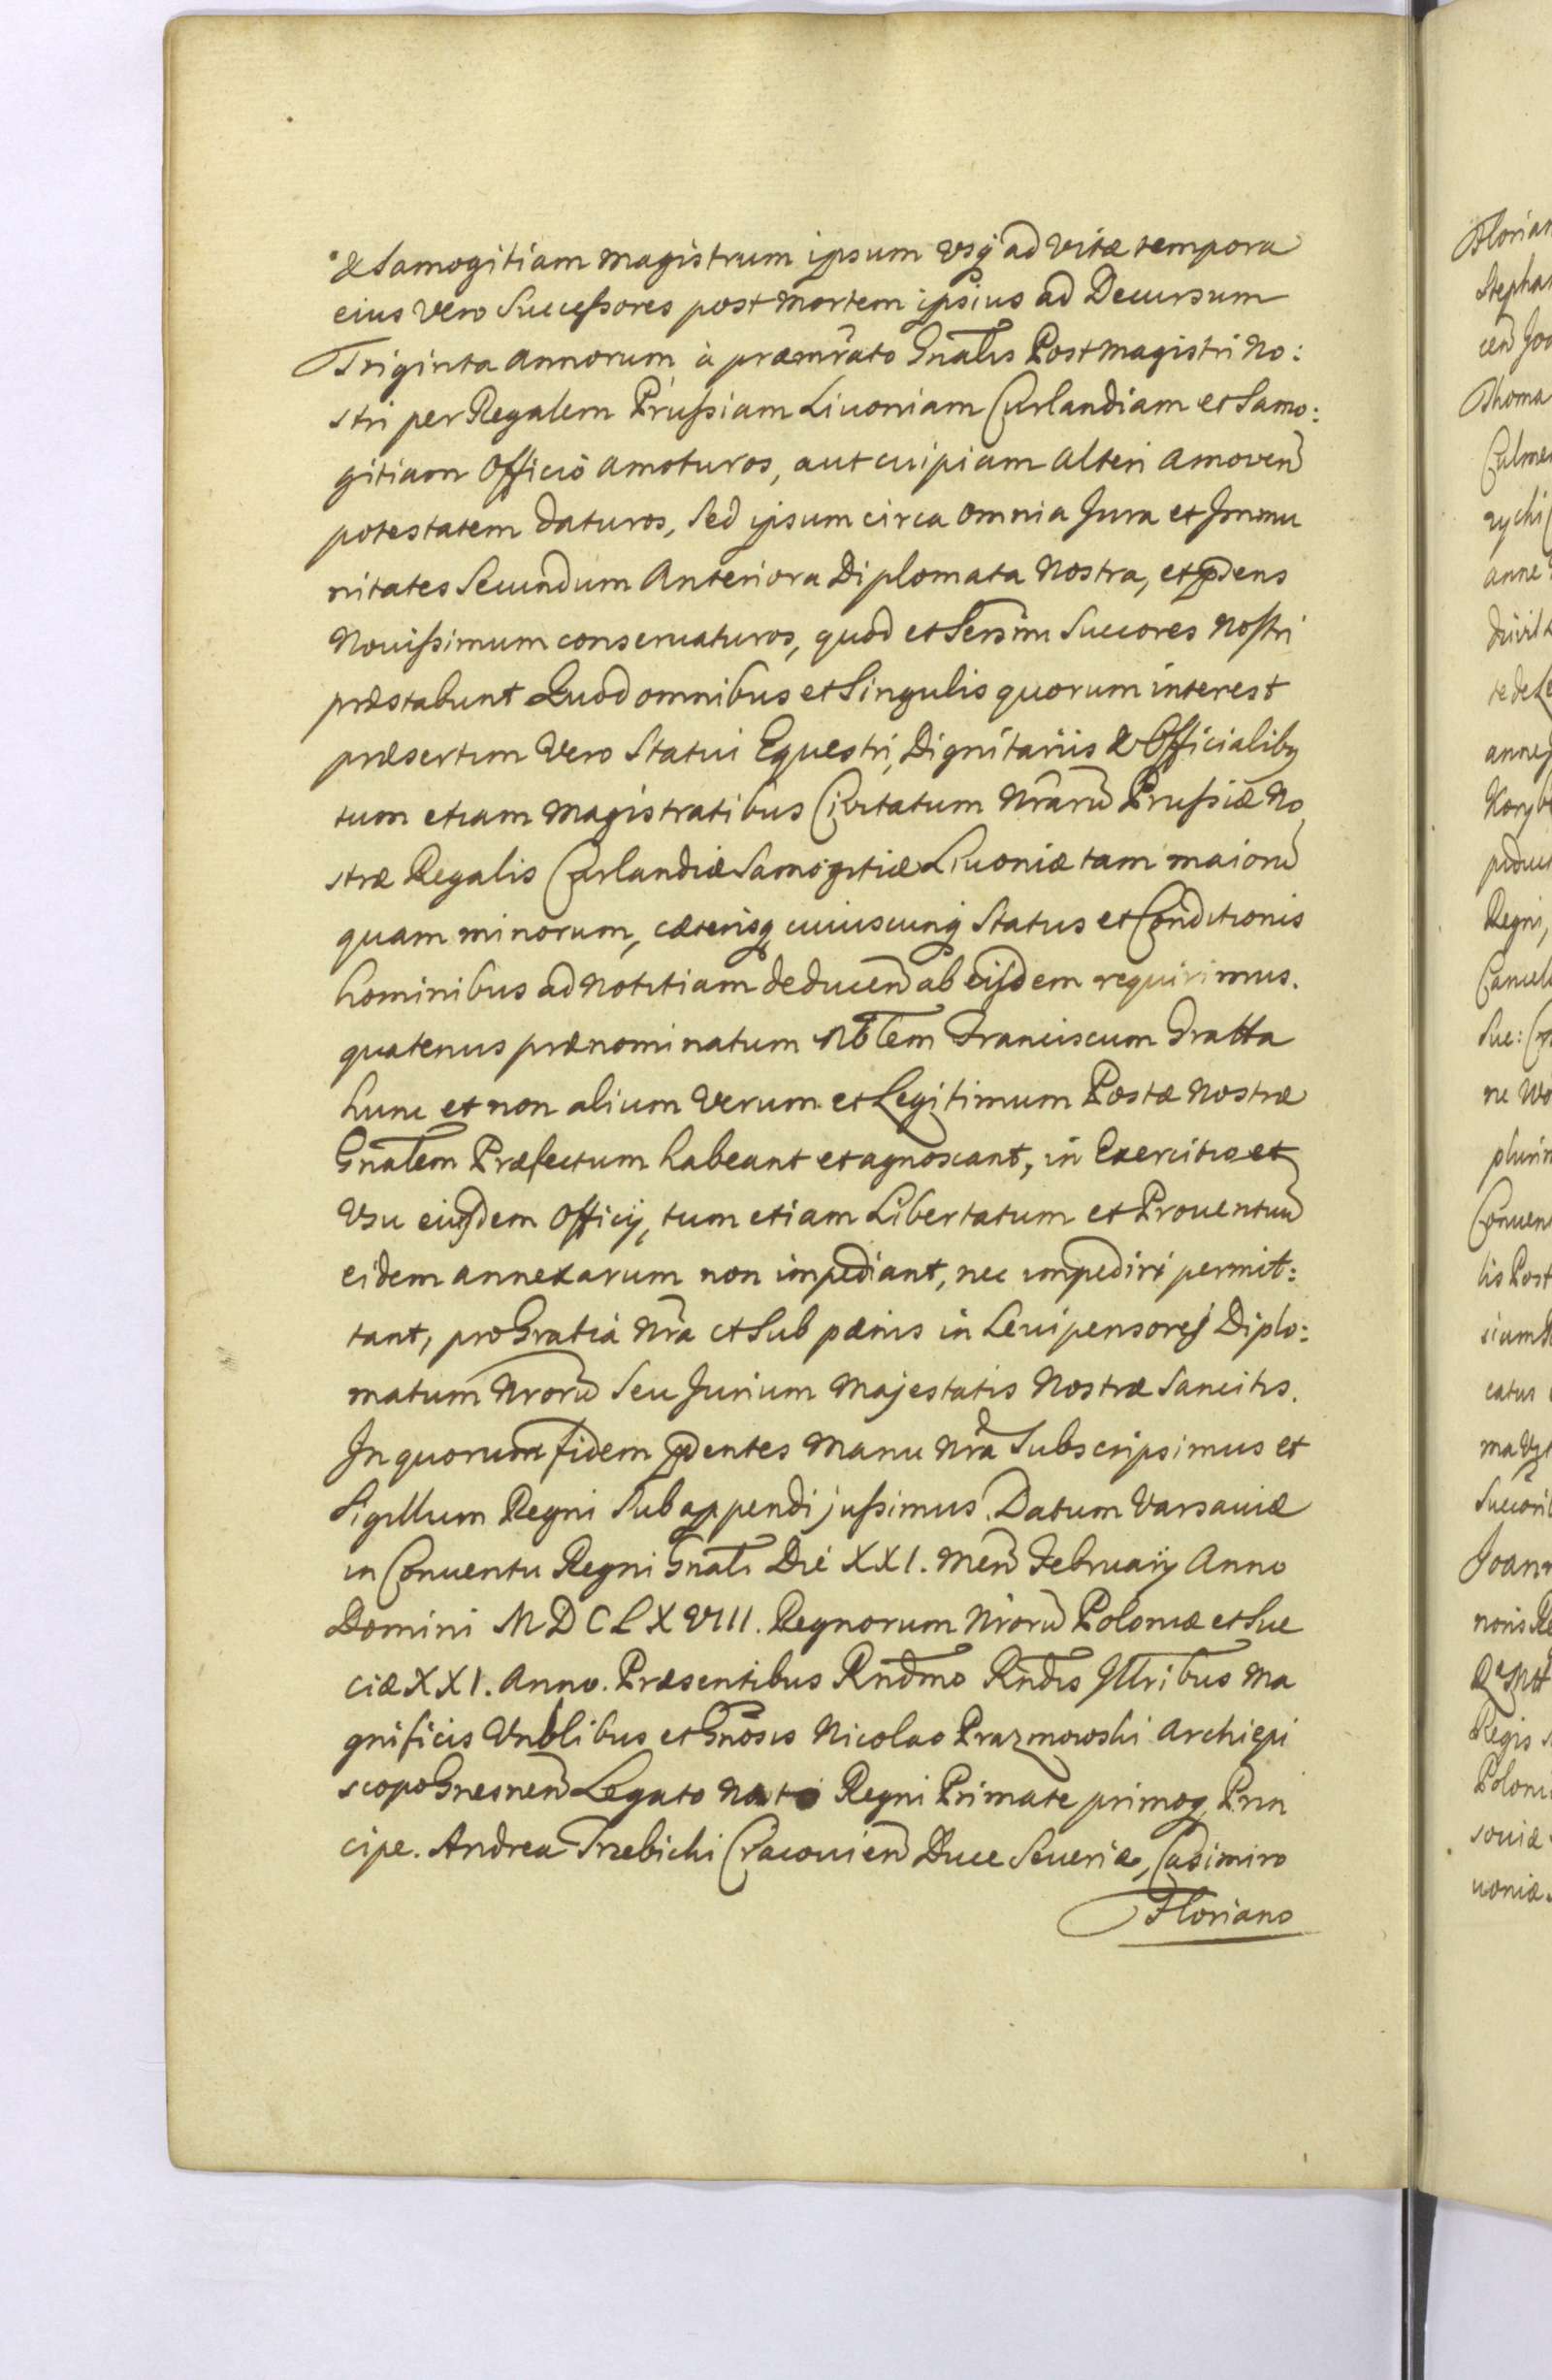 & Samogitiam Magistrum ipsum usq ad vitæ tempora
eius vero Successores post mortem ipsius ad Decursum
Triginta Annorum à præmrato Gnalis Postmagistri No:
stri per Regalem Prussiam Livoniam Curlandiam et Samo:
gitiam Officiô amoturos, aut cuipiam alteri amovend
potestatem daturos, Sed ipsum circa omnia Jura et Immu
nitates Secundum Anteriora Diplomata Nostra, et pdens
Novissimum conservaturos, quod et Sersimi Succores nostri
præstabunt Quod omnibus et Singulis quorum interest
præsertim vero Statui Equestri, Dignitariis & Officialibq
tum etiam Magistratibus Civitatum Nrarũ Prussiæ No
stræ Regalis Curlandiæ Samogitiæ Livoniæ tam maiorũ
quam minorum, cæterisq cuiuscunq Status et Conditionis
hominibus ad notitiam deducend ab eisdem requirimus.
quatenus prænominatum Nblem Franciscum Gratta
hunc et non alium verum et Legitimum Postæ Nostræ
Gnalem Præfectum habeant et agnoscant, in Exercitio et
Usu eiusdem Officij, tum etiam Libertatum et Proventuũ
eidem annexarum non impediant, nec impediri permit:
tant, pro Gratia Nra et Sub pænis in Levipensores Diplo:
matum Nrorũ Seu Jurium Majestatis Nostræ Sancitis.
In quorum fidem pdentes Manu Nrâ Subscripsimus et
Sigillum Regni Subappendi jussimus. Datum Varsaviæ
in Conventu Regni Gnali Die XXI. Men Februarij Anno
Domini MDCLXVIII. Regnorum Nrorũ Poloniæ et Sue
ciæ XXI. Anno. Præsentibus Rndmo Rndis Illribus Ma
gnificis Vnblibus et Gnosis Nicolao Prazmowski Archiepi
scopo Gnesnen Legato Nato Regni Primate primoq Prin
cipe. Andrea Trzebicki Cracovien Duce Severiæ, Casimiro
Floriano
Florian
Stephan
cen Joa
Thoma
Culmen
rycki
anne
te de Le
Regni,
Cancel
Sue:
plurim
Conven
lis Post
catus
Joann
noris Re
Regis
Poloni
soviæ
voniæ.